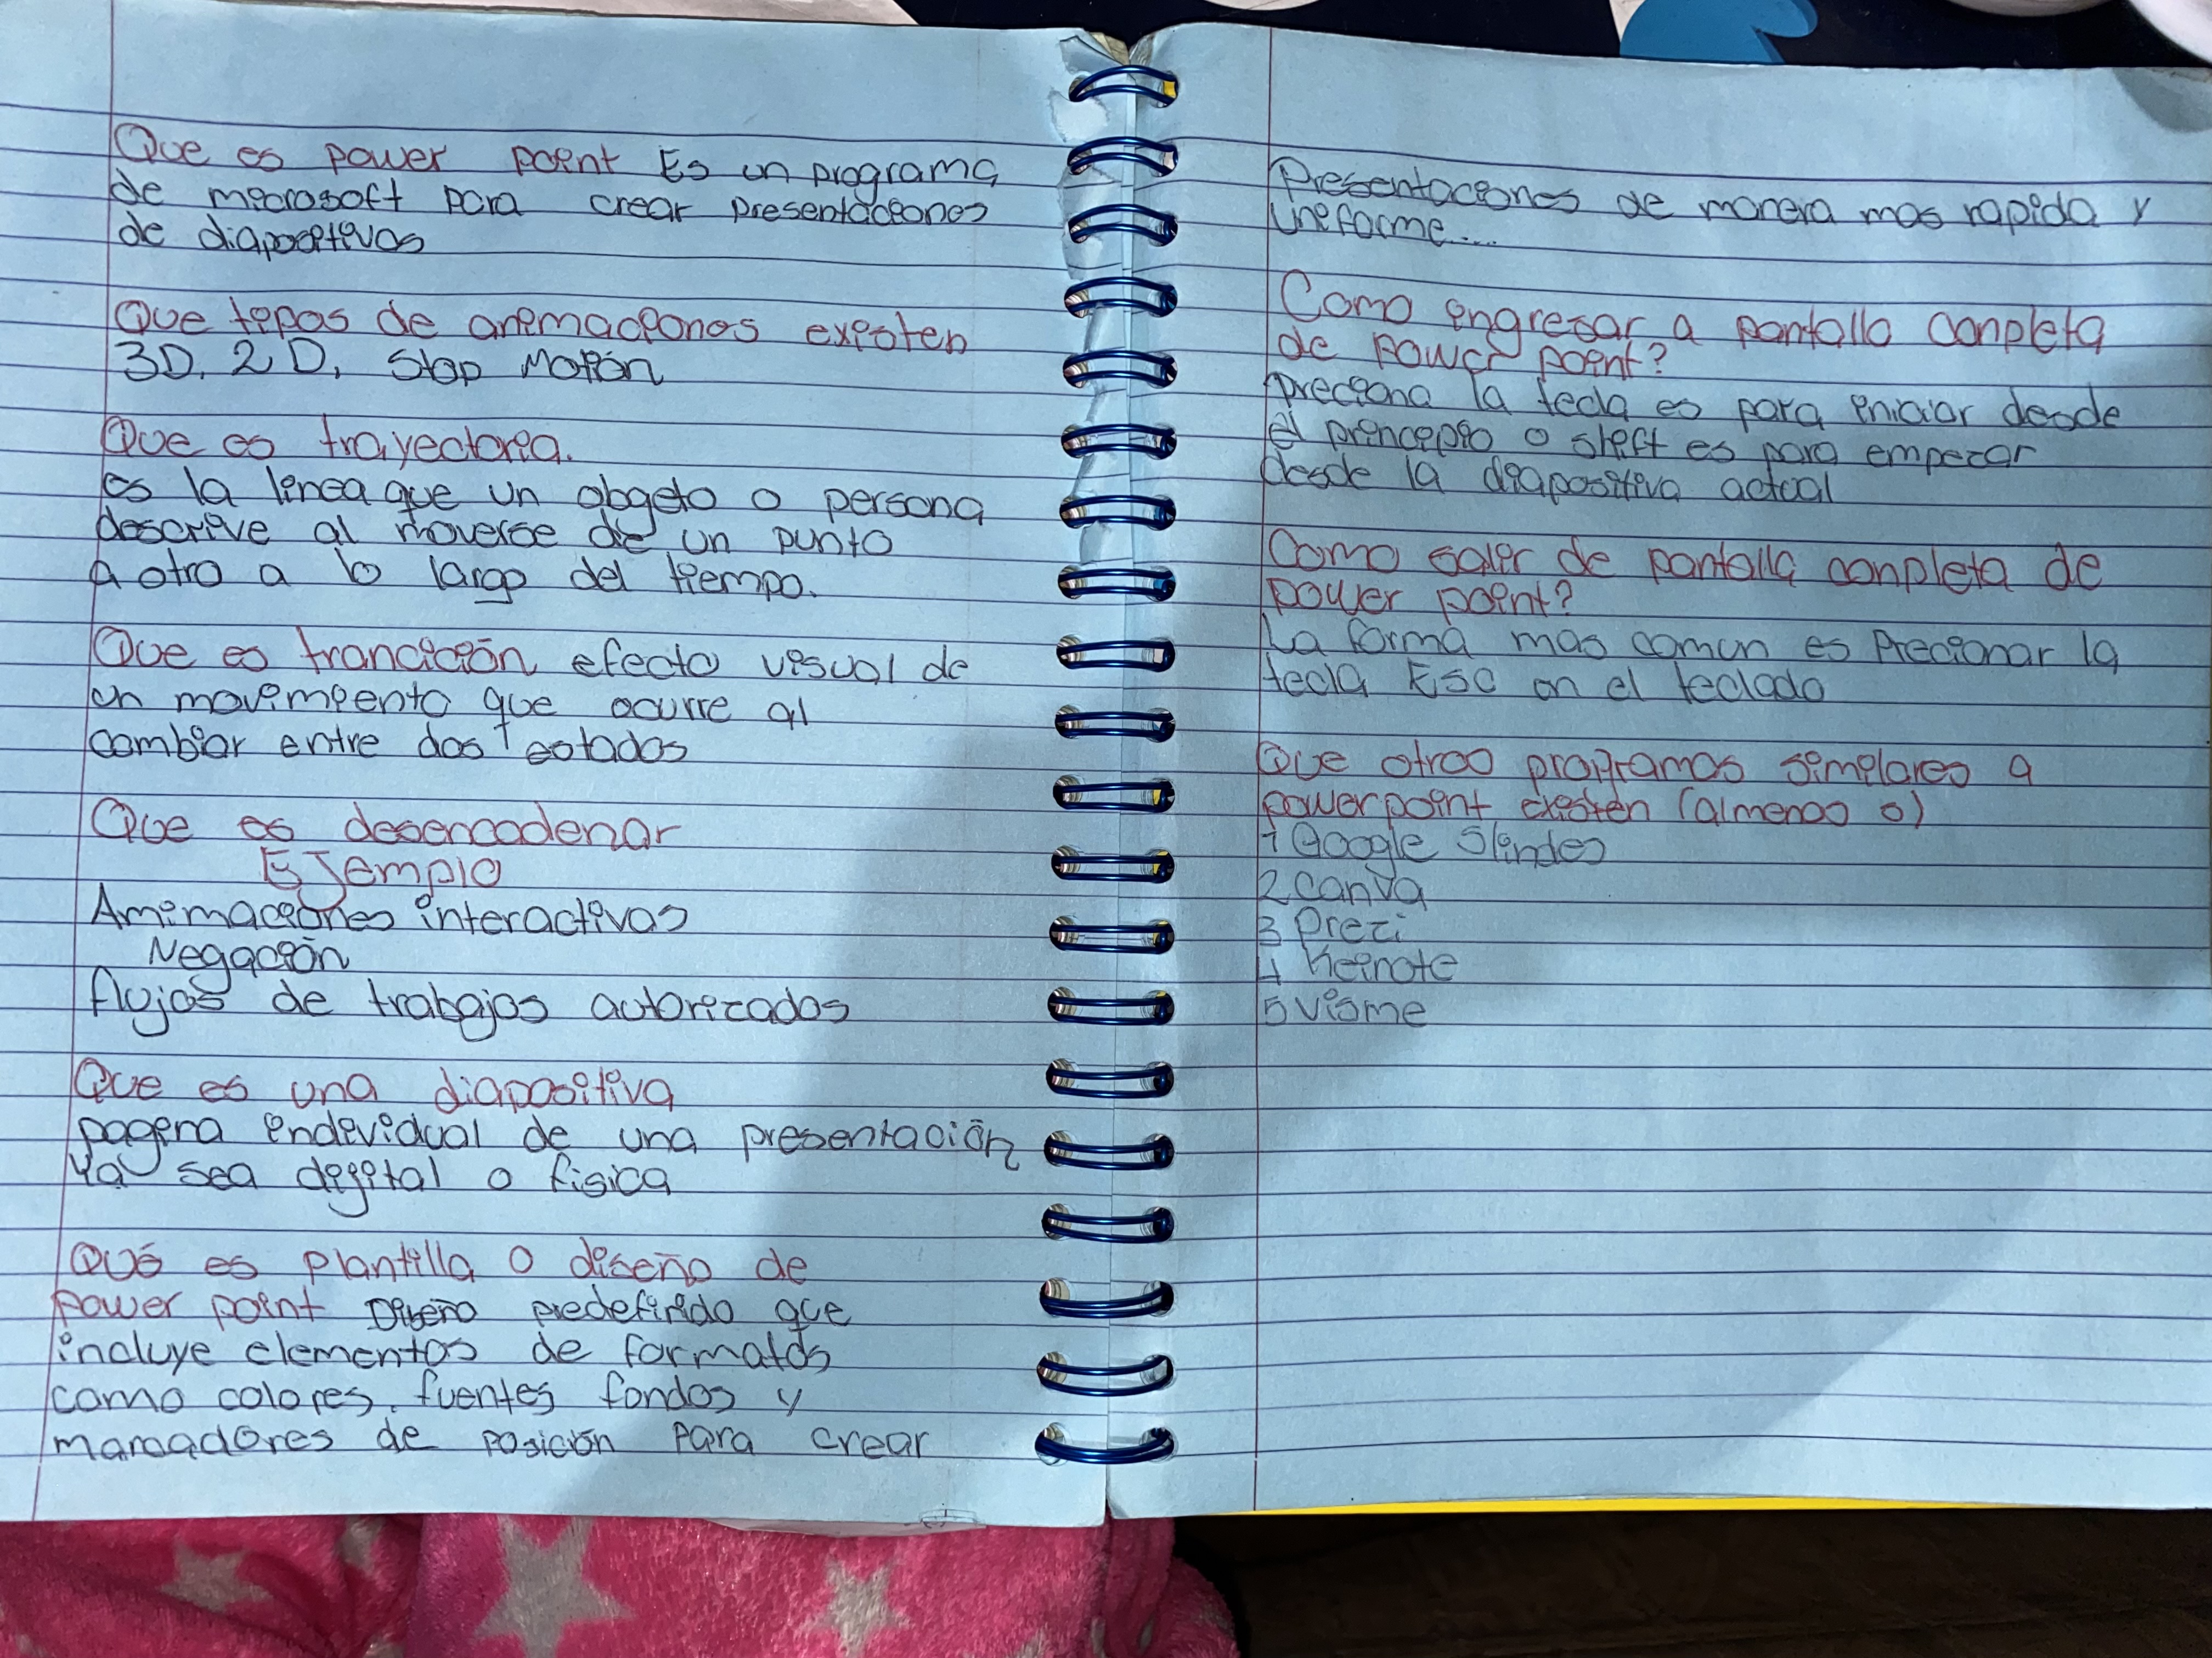 Que es power point Es un programa
de microsoft para crear presentaciones
de diapositivas
Que tipos de animaciones existen
3D, 2D, Stop Motión
Que es trayectoria.
es la linea que un obgeto o persona
descrive al moverse de un punto
a otro a lo largo del tiempo.
Que es trancición efecto visual de
un movimiento que ocurre al
cambiar entre dos estados
Que es desencadenar
Ejemplo
Amimaciones interactivas
Negación
flujos de trabajos autorizados
Que es una diapositiva
pagina individual de una presentación
Ya sea digital o fisica
Qué es plantilla o diseño de
power point Diseño predefinido que
incluye elementos de formatos
como colores, fuentes fondos y
marcadores de posición para crear
Presentaciones de manera mas rapida y
uniforme....
Como ingresar a pantalla conpleta
de power point?
preciona la tecla es para iniciar desde
el principio o shift es para empezar
desde la diapositiva actual
Como salir de pantalla conpleta de
power point?
La forma mas comun es Precionar la
tecla Esc en el teclado
Que otros programas similares a
powerpoint existen (almenos 5)
1 Google Slindes
2 Canva
3 Prezi
4 Keinote
5 Visme